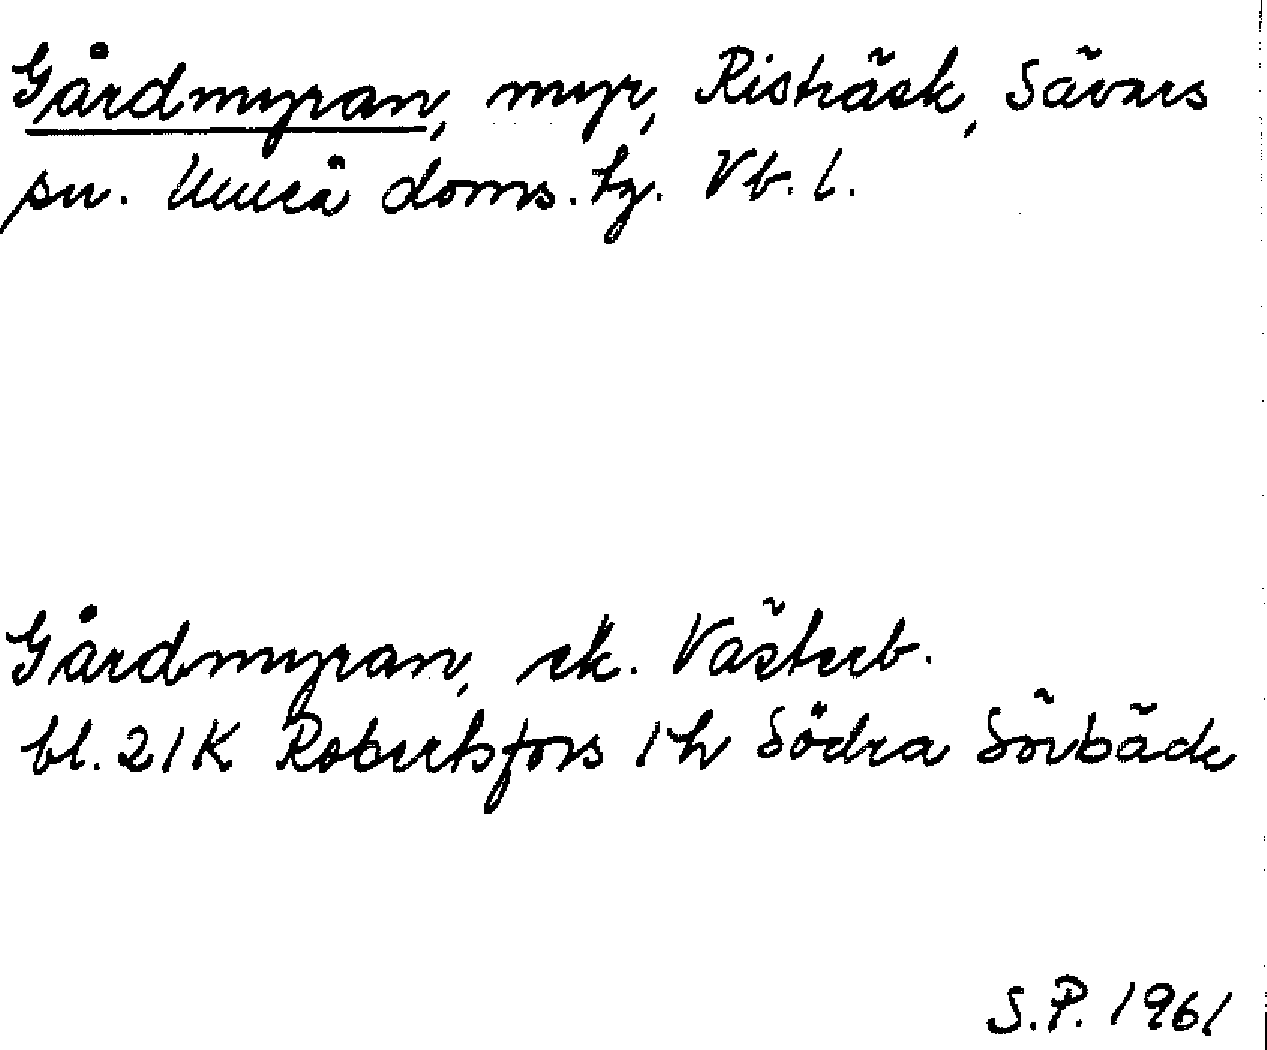 Gårdmyran, myr, Risträsk, Sävars
sn. Umeå doms. tg. Vb. l.
Gårdmyran, ek. Västerb.
bl. 21K Robertsfors 1h Södra Sörbäck
S.P. 1961